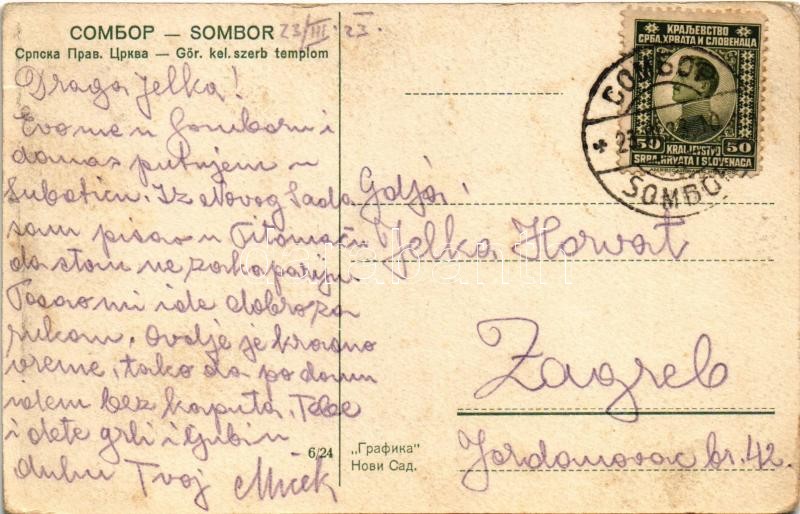 СОМБОР — SOMBOR 23/III. 23.
Српска Прав. Црква — Gör. kel. szerb templom
КРАЉЕВСТВО
СРБА, ХРВАТА И СЛОВЕНАЦА
50 50
KRALJEVSTVO
SRBA, HRVATA I SLOVENACA
СОМБОР
23
SOMBOR
Draga Jelka!
Evo me u Somboru i
danas putujem u
Suboticu. Iz Novog Sada
sam pisao u
da stan ne zakapariju.
Posao mi ide dobro za
rukom. Ovdje je krasno
vreme, tako da po danu
idem bez kaputa. Tebe
i dete grli i ljubi u
duhu Tvoj Micek
Gdja.
Jelka Horvat
Zagreb
Jordanovac br. 42.
6/24
„Графика"
Нови Сад.
Darabanth